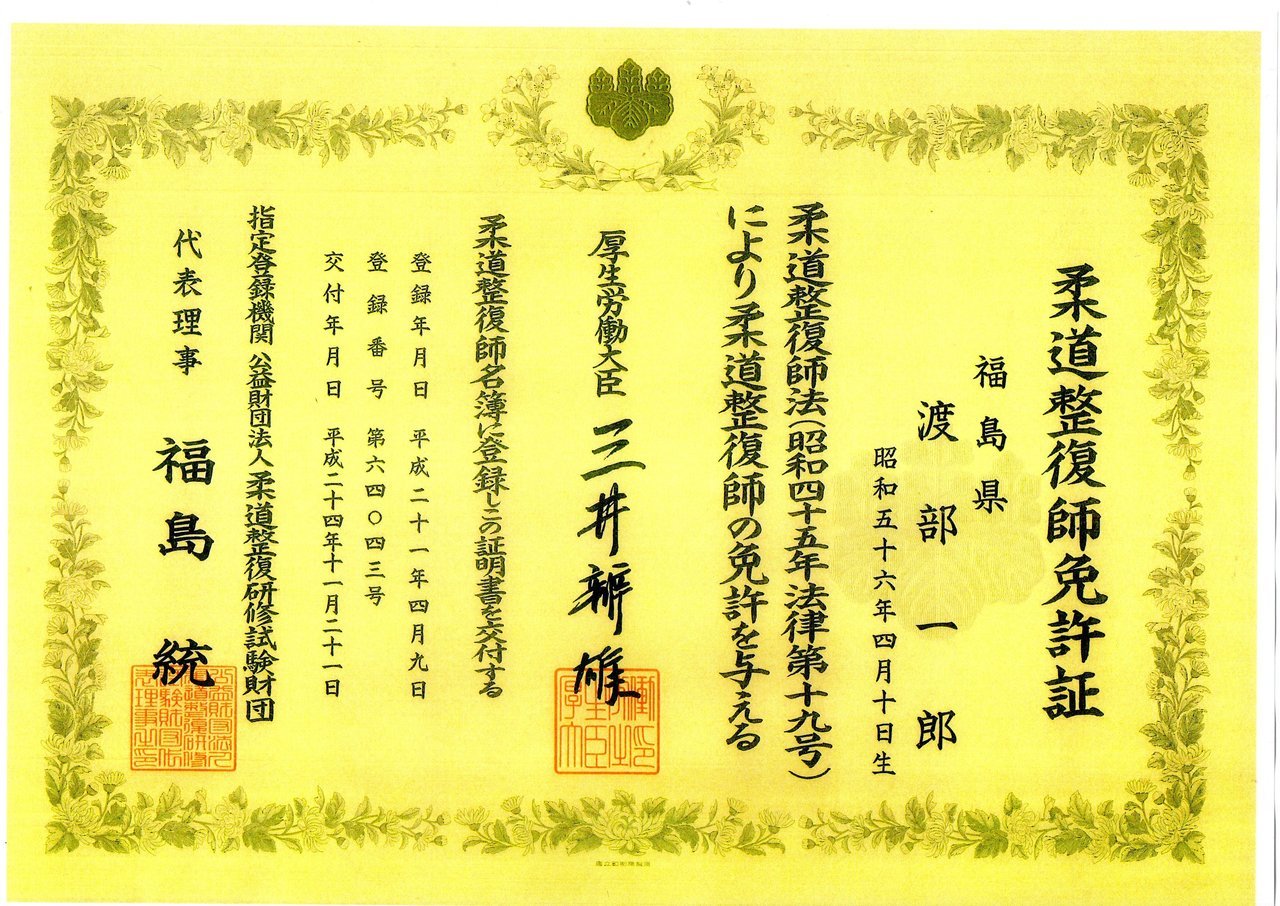 柔道整復師免許証
福島県
渡部一郎
昭和五十六年四月十日生
柔道整復師法(昭和四十五年法律第十九号)
により柔道整復師の免許を与える
厚生労働大臣 三井辨雄
柔道整復師名簿に登録しこの証明書を交付する
登録年月日 平成二十一年四月九日
登録番号 第六四〇四三号
交付年月日 平成二十四年十一月二十一日
指定登録機関 公益財団法人 柔道整復研修試験財団
代表理事 福島統